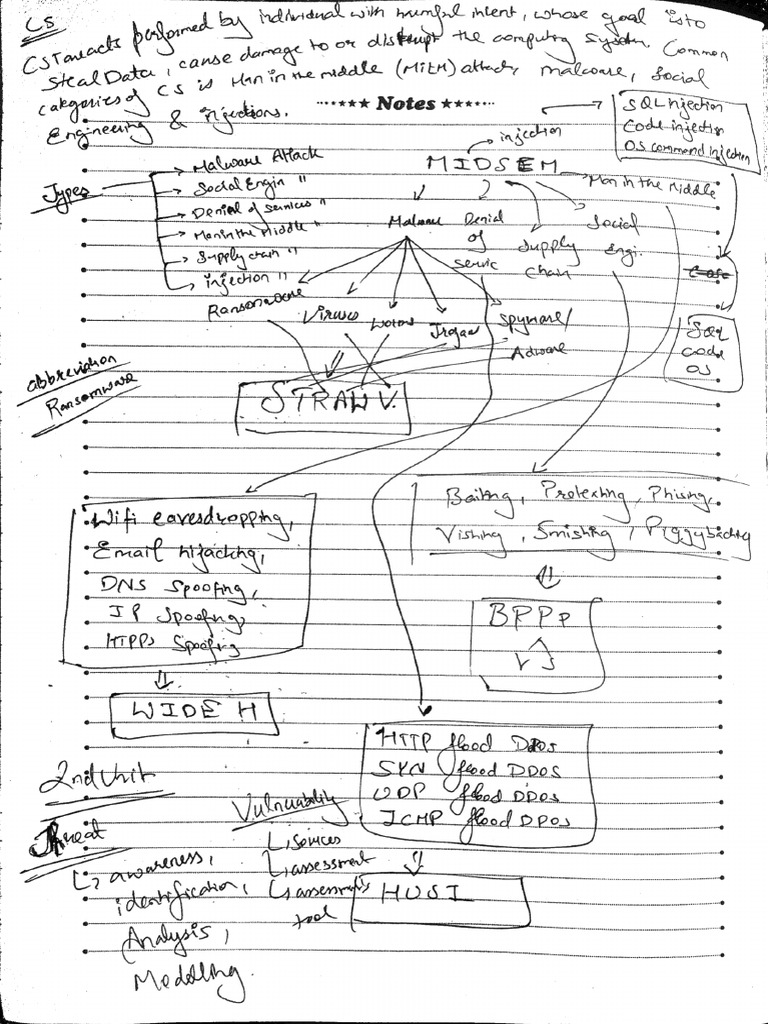 CS
CST are acts performed by individual with harmful intent, whose goal is to
Steal Data, cause damage to or disrupt the computing system. Common
categories of CS is Man in the middle (MitM) attack, malware, Social
Engineering & injections.
Notes
SQL injection
Code injection
OS command injection
injection
MIDSEM
Man in the Middle
Types
Malware Attack
Social Engin "
Denial of services "
Man in the Middle "
Supply chain "
injection "
Malware
Denial
of
servic
Supply
Chain
Social
Engi.
Ransomware
Viruses
Worms
Trojan
Spyware/
Adware
SQL
Code
OS
abbreviation
Ransomware
STRAW V.
Wifi eavesdropping,
Email hijacking,
DNS Spoofing,
IP Spoofing,
HTPPs Spoofing
WIDE H
Baiting, Pretexting, Phising,
Vishing, Smishing, Piggybacking
BPPP
VS
HTTP flood DDOS
SYN flood DDOS
UDP flood DDOS
ICMP flood DDOS
HUSI
2nd Unit
Threat
awareness,
identification,
Analysis,
Modelling.
Vulnurability
Services
assessment
assessments
tool